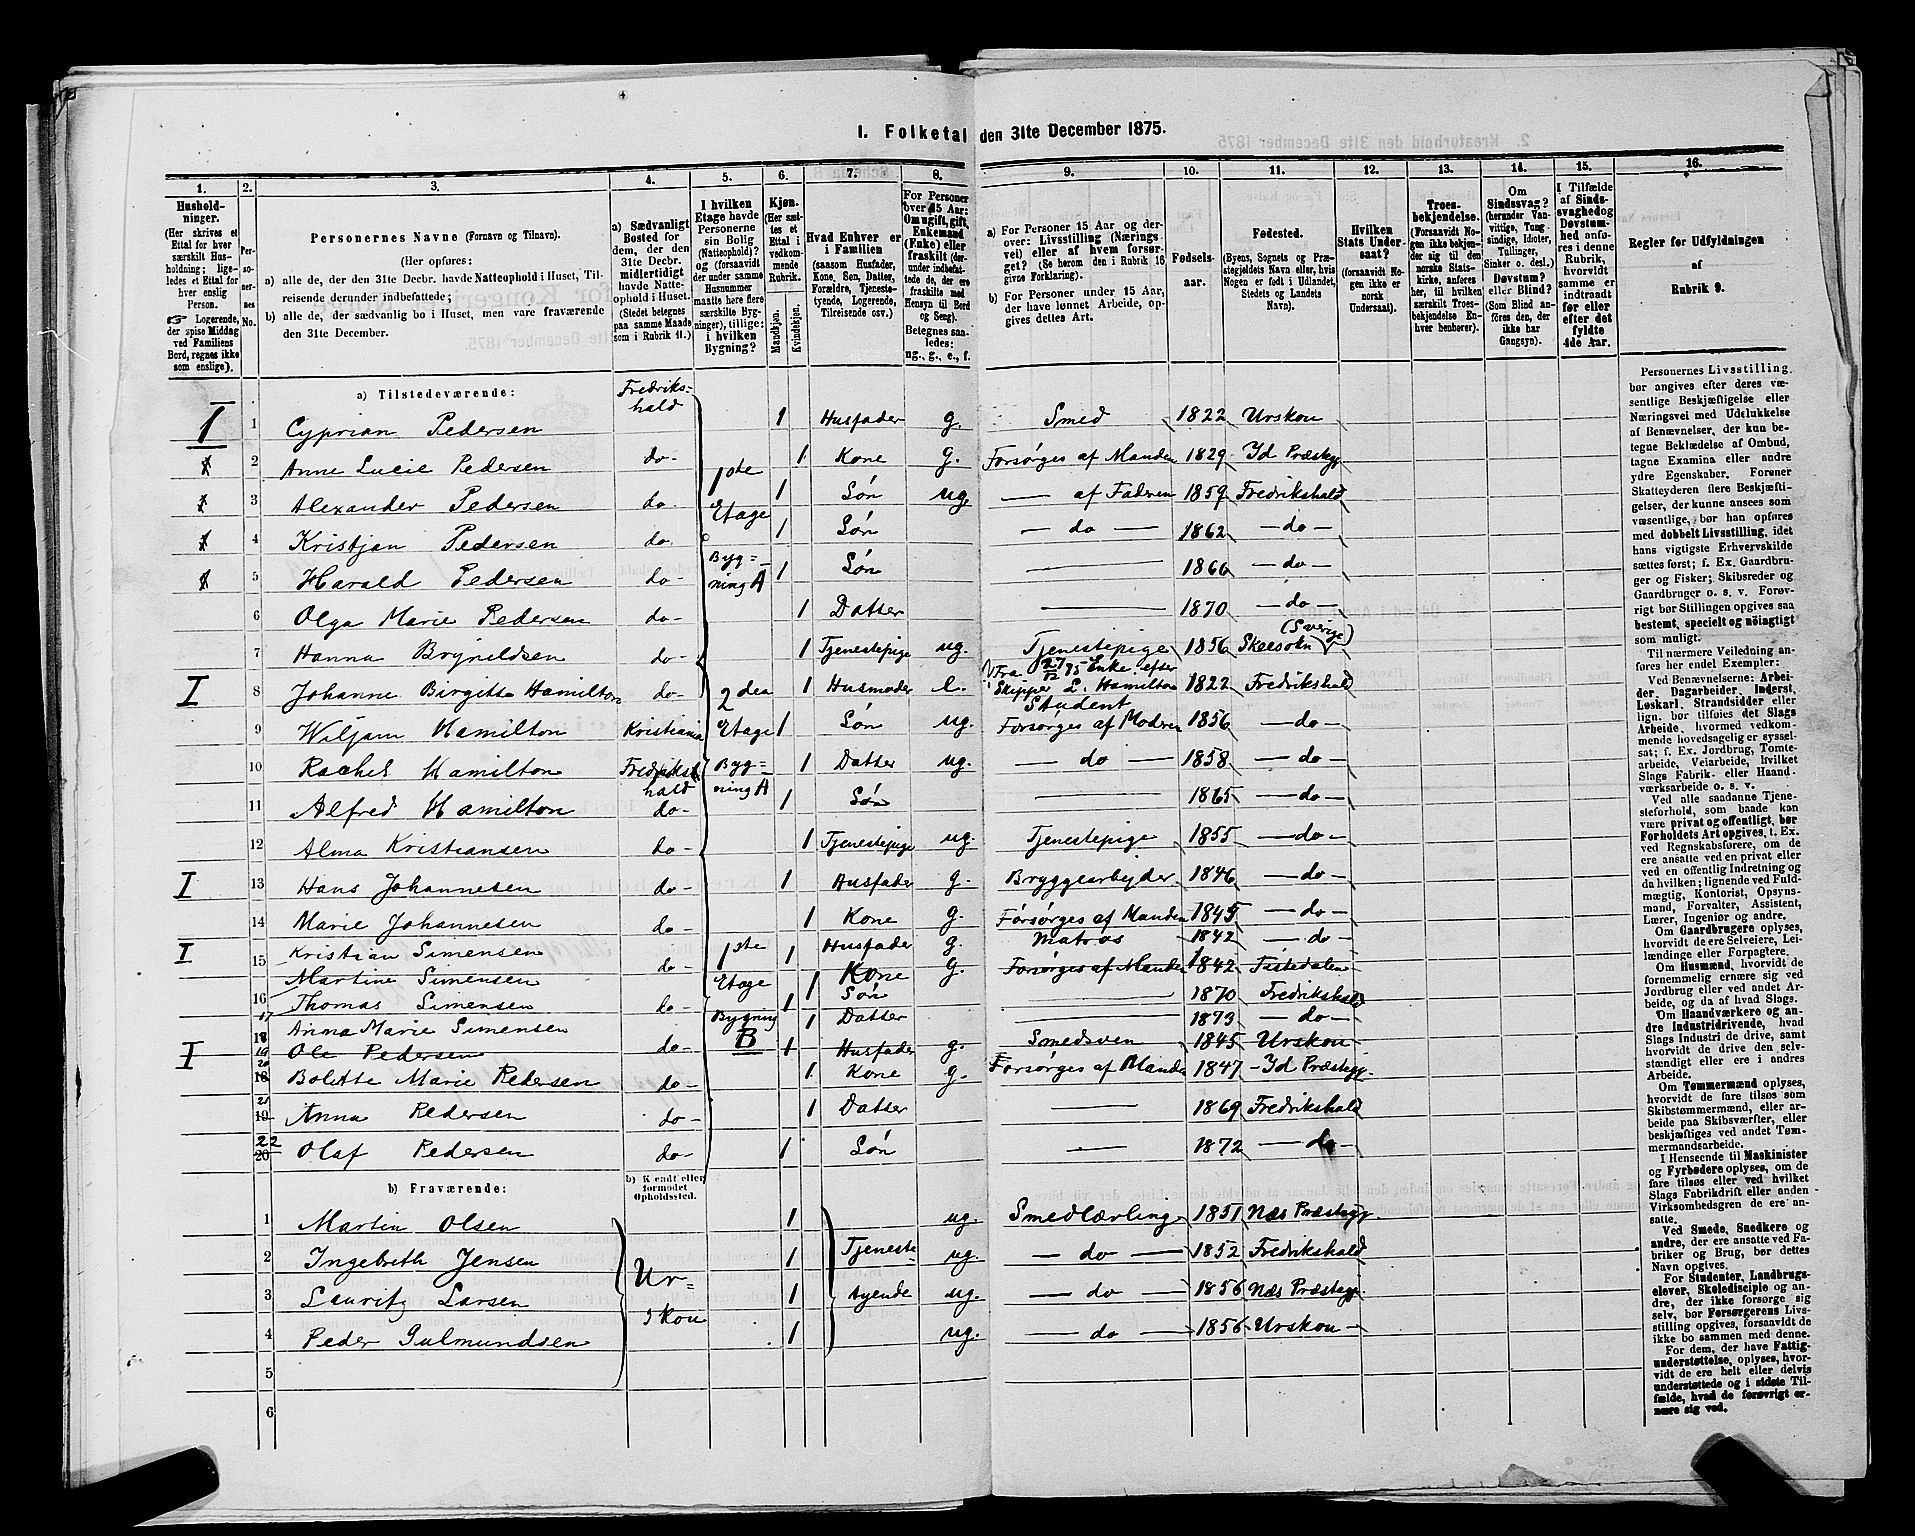 I. Folketal den 31te December 1875.
1. 2. 3. 4. 5. 6. 7. 8. 9. 10. 11. 12. 13. 14. 15. 16.
Hushold-
ninger.
(Her skrives et
Ettal for hver
særskilt Hus-
holdning; lige-
ledes et Ettal for
hver enslig
Person.
☞ Logerende,
der spise Middag
ved Familiens
Bord, regnes ikke
som enslige).
Per-
so-
ner-
nes
No.
Personernes Navne (Fornavn og Tilnavn).
(Her opføres:
a) alle de, der den 31te Decbr. havde Natteophold i Huset, Til-
reisende derunder indbefattede;
b) alle de, der sædvanlig bo i Huset, men vare fraværende
den 31te December.
a) Sædvanligt
Bosted for
dem, der den
31te Decbr.
midlertidigt
havde Natte-
ophold i Huset.
(Stedet betegnes
paa samme Maade
som i Rubrik 11.)
I hvilken
Etage havde
Personerne
sin Bolig
(Natteophold)?
og (forsaavidt
der under samme
Husnummer
maatte høre flere
særskilte Byg-
ninger), tillige:
i hvilken
Bygning?
Kjøn.
(Her sæt-
tes et
Ettal i
vedkom-
mende
Rubrik.
Mandkjøn. Kvindekjøn.
Hvad Enhver er
i Familien
(saasom Husfader,
Kone, Søn, Datter,
Forældre, Tjeneste-
tyende, Logerende,
Tilreisende osv.)
For Personer
over 15 Aar:
Om ugift, gift,
Enkemand
(Enke) eller
fraskilt (der-
under indbefat-
tede de, der ere
fraskilte med
Hensyn til Bord
og Seng).
Betegnes saa-
ledes:
ug., g., e., f.
a) For Personer 15 Aar og der-
over: Livsstilling (Nærings-
vei) eller af hvem forsør-
get? (Se herom den i Rubrik 16
givne Forklaring).
b) For Personer under 15 Aar,
der have lønnet Arbeide, op-
gives dettes Art.
Fødsels-
aar.
Fødested.
(Byens, Sognets og Præ-
stegjeldets Navn eller, hvis
Nogen er født i Udlandet,
Stedets og Landets
Navn).
Hvilken
Stats Under-
saat?
(forsaavidt No-
gen ikke er
norsk
Undersaat).
Troes-
bekjendelse.
(Forsaavidt No-
gen ikke bekjen-
der sig til den
norske Stats-
kirke, anføres
her, til hvilken
særskilt Troes-
bekjendelse En-
hver henhører).
Om
Sindssvag?
(herunder Van-
vittige, Tung-
sindige, Idioter,
Tullinger,
Sinker o. desl.)
Døvstum?
eller Blind?
(Som Blind an-
føres den, der
ikke har
Gangsyn).
I Tilfælde
af Sinds-
svaghed og
Døvstum-
hed anfø-
res i denne
Rubrik,
hvorvidt
samme er
indtraadt
før eller
efter det
fyldte
4de Aar.
Regler for Udfyldningen
af
Rubrik 9.
a) Tilstedeværende:
Fredriks-
hald
1 1 Cyprian Pedersen 1 Husfader g. Smed 1822 Urskou
2 Anne Lucie Pedersen do- 1ste 1 Kone g. Forsørges af Manden 1829 Id Præstegj
3 Alexander Pedersen do- Etage 1 Søn ug. — af Faderen 1859 Fredrikshald
4 Kristjan Pedersen do. 1 Søn — do — 1862 — do —
5 Harald Pedersen do- Byg=
ning A 1 Søn 1866 — do —
6 Olga Marie Pedersen do- 1 Datter 1870 — do —
(Sverige)
7 Hanna Brynildsen do- 1 Tjenestepige ug. Tjenestepige 1856
I 8 Johanne Birgitte Hamilton do- 2den 1 Husmoder e. Enke efter
Skipper L. Hamilton 1822 Fredrikshald
Student
9 Wiljam Hamilton Kristiania Etage 1 Søn ug. Forsørges af Modren 1856 — do —
10 Rachel Hamilton Fredriks
hald Byg=
ning A 1 Datter ug. — do — 1858 — do —
11 Alfred Hamilton do- 1 Søn 1865 — do —
12 Alma Kristiansen do- 1 Tjenestepige ug. Tjenestepige 1855 — do —
I 13 Hans Johannesen do- 1 Husfader g. Bryggearbejder 1846 — do —
14 Marie Johannesen do- 1 Kone g. Forsørges af Manden 1845 — do —
I 15 Kristian Simensen do- 1ste 1 Husfader g. Matros 1842 — do —
16 Martine Simensen Etage 1 Kone g. Forsørges af Manden 1842 Tistedalen
17 Thomas Simensen do- 1 Søn 1870 Fredrikshald
18 Anna Marie Simensen Bygning
B 1 Datter 1873 — do —
I 19 Ole Pedersen do- 1 Husfader g. Smedsven 1845 Urskou
20 Bolette Marie Pedersen do- 1 Kone g. Forsørges af Manden 1847 Id Præstegj.
21 Anna Pedersen do- 1 Datter 1869 Fredrikshald
22 Olaf Pedersen do- 1 Søn 1872 — do —
b) Fraværende:
b) Kjendt eller
formodet
Opholdssted.
1 Martin Olsen 1 ug. Smedlærling 1851 Næs Præstegj.
2 Ingebreth Jensen Ur= 1 Tjeneste- ug. — do — 1852 Fredrikshald
3 Lauritz Larsen skou 1 tyende ug. — do — 1856 Næs Præstegj
4 Peder Gulmundsen 1 ug. — do — 1856 Urskou
5
6
Personernes Livsstilling
bør angives efter deres væ-
sentlige Beskjæftigelse eller
Næringsvei med Udelukkelse
af Benævnelser, der kun be-
tegne Beklædelse af Ombud,
tagne Examina eller andre
ydre Egenskaber. Forener
Skatteyderen flere Beskjæfti-
gelser, der kunne ansees som
væsentlige, bør han opføres
med dobbelt Livsstilling, idet
hans vigtigste Erhvervskilde
sættes først; f. Ex. Gaardbru-
ger og Fisker; Skibsreder og
Gaardbruger o. s. v. Forøv-
rigt bør Stillingen opgives saa
bestemt, specielt og nøiagtigt
som muligt.
Til nærmere Veiledning an-
føres her endel Exempler:
Ved Benævnelserne: Arbei-
der, Dagarbeider, Inderst,
Løskarl, Strandsidder eller
lign. bør tilføies det Slags
Arbeide, hvormed vedkom-
mende hovedsagelig er syssel-
sat; f. Ex. Jordbrug, Tomte-
arbeide, Veiarbeide, hvilket
Slags Fabrik- eller Haand-
værksarbeide o. s. v.
Ved alle saadanne Tjene-
steforhold, som baade kan
være privat og offentligt, bør
Forholdets Art opgives, t. Ex.
ved Regnskabsførere, om de
ere ansatte ved en privat eller
en offentlig Indretning og
da hvilken; lignende ved Fuld-
mægtig, Kontorist, Opsyns-
mand, Forvalter, Assistent,
Lærer, Ingeniør og andre.
Om Gaardbrugere oplyses,
hvorvidt de ere Selveiere, Lei-
lændinge eller Forpagtere.
Om Husmænd, hvorvidt de
fornemmelig ernære sig ved
Jordbrug eller ved andet Ar-
beide, og da af hvad Slags.
Om Haandværkere og an-
dre Industridrivende, hvad
Slags Industri de drive, samt
hvorvidt de drive den selv-
stændigt eller ere i andres
Arbeide.
Om Tømmermænd oplyses,
hvorvidt de fare tilsøs som
Skibstømmermænd, eller ar-
beide paa Skibsværfter, eller
beskjæftiges ved andet Tøm-
mermandsarbeide.
I Henseende til Maskinister
og Fyrbødere oplyses, om de
fare tilsøs eller ved hvilket
Slags Fabrikdrift eller anden
Virksomhedsgren de ere an-
satte.
Ved Smede, Snedkere og
andre, der ere ansatte ved Fa-
briker og Brug, bør dettes
Navn opgives.
For Studenter, Landbrugs-
elever, Skoledisciple og an-
dre, der ikke forsørge sig
selv, bør Forsørgerens Livs-
stilling opgives, forsaavidt de
ikke bo sammen med denne.
For dem, der have Fattig-
understøttelse, oplyses, hvor-
vidt de ere helt eller delvis
understøttede og i sidste Til-
fælde, hvad de forøvrigt er-
nære sig ved.